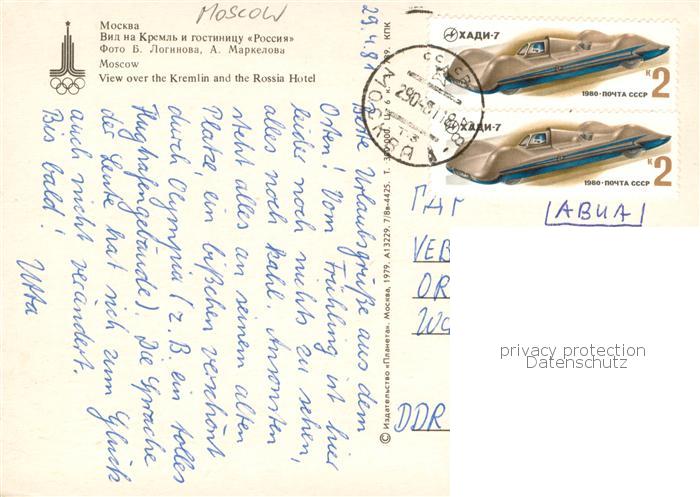 Moscow
Москва
Вид на Кремль и гостиницу «Россия»
Фото Б. Логинова, А. Маркелова
Moscow
View over the Kremlin and the Rossia Hotel
29.4.81
Beste Urlaubsgrüße aus dem
Osten! Vom Frühling ist hier
leider noch nichts zu sehen,
alles noch kahl. Ansonsten
steht alles an seinem alten
Platze, ein bißchen verschönt
durch Olympia (z. B. ein tolles
Flughafengebäude). Die Sprache
der Leute hat sich zum Glück
auch nicht verändert.
Bis bald! Utta
© Издательство «Планета». Москва, 1979. А13229. 7/8в-4425. Т. 300 000. Ц. 6 к. КПК
ХАДИ-7
к 2
1980·ПОЧТА СССР
ХАДИ-7
к 2
1980·ПОЧТА СССР
СССР
МОСКВА
АВИА
ГДР
DDR
privacy protection
Datenschutz